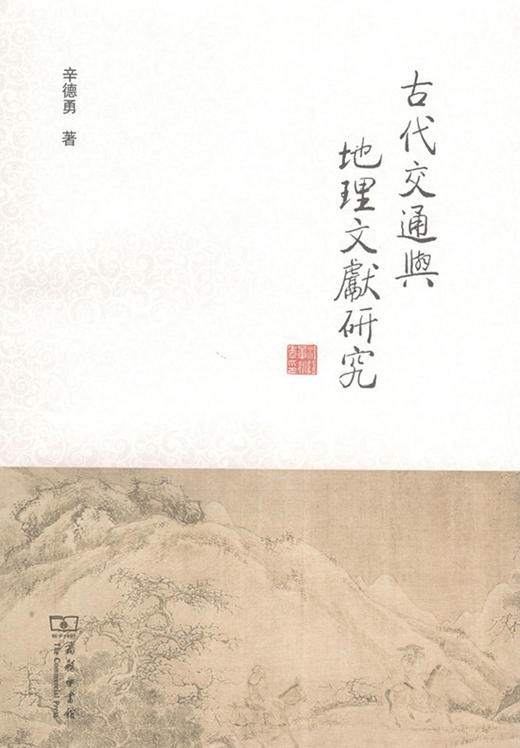 古代交通與
地理文獻研究
辛德勇 著
商務印書館
The Commercial Press